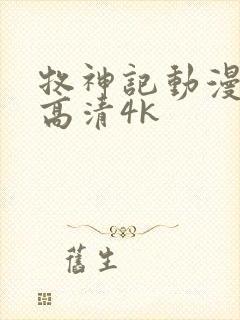 牧神記動漫
高清4K
舊生